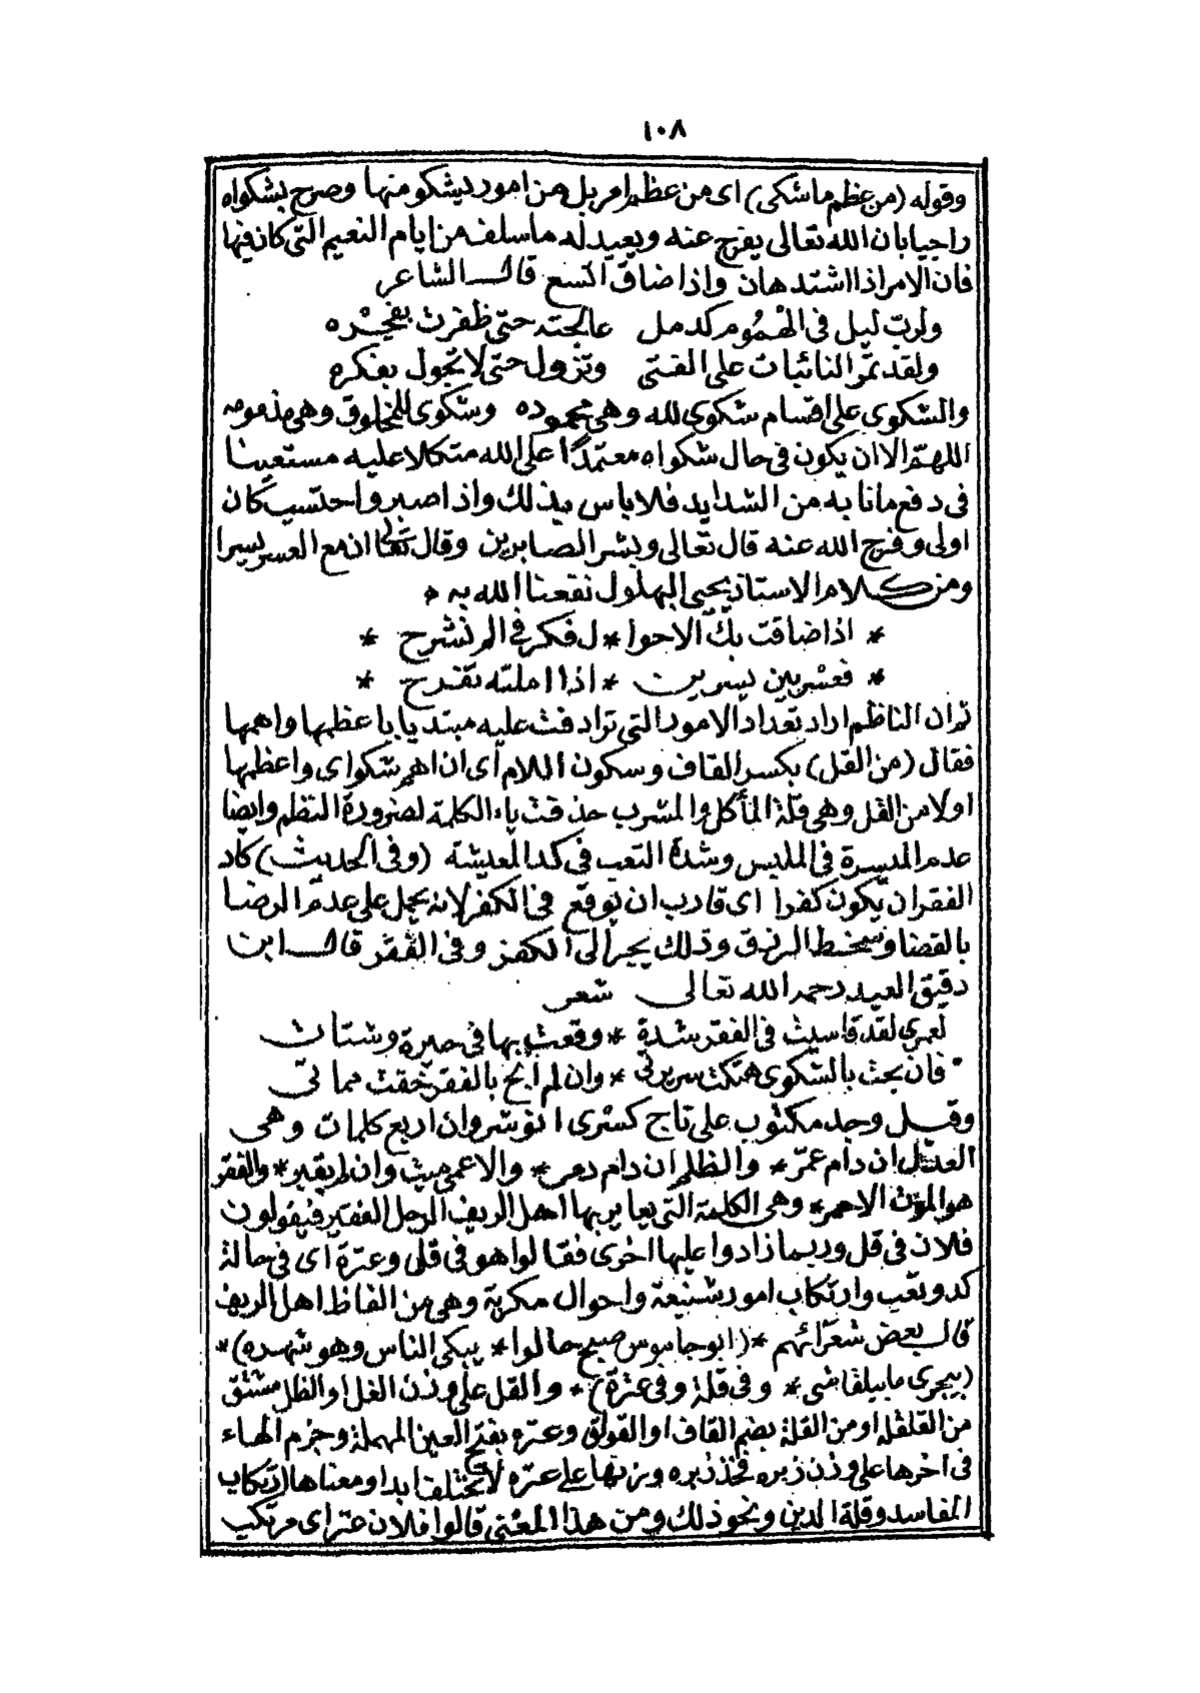 ١٠٨
وقوله (من عظم ما شكى) اى من عظم امر بل من امور يشكو منها وصرح بشكواه
راجيا بان الله تعالى يفرج عنه ويعيد له ما سلف من ايام النعيم التى كان فيها
فان الامر اذا اشتد هان واذا ضاق اتسع قال الشاعر
ولرب ليل فى الهُمُوم كدمل عالجته حتى ظفرت بفجره
ولقد تمر النائبات على الفتى وتزول حتى لا تجول بفكره
والشكوى على اقسام شكوى لله وهى محموده وشكوى للمخلوق وهى مذمومه
اللهم الا ان يكون فى حال شكواه معتمدًا على الله متكلا عليه مستعينا
فى دفع ما نابه من الشدايد فلا باس بذلك واذا صبر واحتسب كان
اولى وفرج الله عنه قال تعالى وبشر الصابرين وقال تعالى ان مع العسر يسرا
ومن كلام الاستاذ يحيى البهلول نفعنا الله به
* اذا ضاقت بك الاحوا * ل فكر فى الم نشرح *
* فعسر بين يسرين * اذا املته تفرح *
ثم ان الناظم اراد تعداد الامور التى ترادفت عليه مبتديا باعظمها واهمها
فقال (من القل) بكسر القاف وسكون اللام اى ان اهم شكواى واعظمها
اولا من القل وهى قلة المأكل والمشرب حذفت ياء الكلمة لضرورة النظم وايضا
عدم الميسرة فى الملبس وشدة التعب فى كد المعيشة (وفى الحديث) كاد
الفقر ان يكون كفرا اى قارب ان يوقع فى الكفر لانه يحمل على عدم الرضا
بالقضا وسخط الرزق وذلك يجر الى الكفر وفى الفقر قال ابن
دقيق العيد رحمه الله تعالى شعر
لعمرى لقد قاسيت فى الفقر شدة * وقعت بها فى حيرة وشتات
فان بحت بالشكوى هتكت سريرتى * وان لم ابح بالفقر خفت مماتى
وقيل وجد مكتوب على تاج كسرى انوشروان اربع كلمات وهى
العدل ان دام عمّر * والظلم ان دام دمر * والاعمى ميت وان لم يقبر * والفقر
هو الموت الاحمر * وهى الكلمة التى يعاير بها اهل الريف الرجل الفقير فيقولون
فلان فى قل وربما زادوا عليها اخرى فقالوا هو فى قلى وعترة اى فى حالة
كد وتعب وارتكاب امور شنيعة واحوال مكربة وهى من الفاظ اهل الريف
قال بعض شعرائهم * (ابو جاموس صبح حالوا * يبكى الناس وهو شهده) *
(يجرى ما بيلقا شى * وفى قلة وفى عترة) * والقل على وزن الغل او الظل مشتق
من القلقله او من القلة بضم القاف او القولق وعتره بفتح العين المهملة وجزم الهاء
فى اخرها على وزن زبره فخذ زبره وزنها على عتره لا تختلف ابدا ومعناها ارتكاب
المفاسد وقلة الدين ونحو ذلك ومن هذا المعنى قالوا فلان عتر اى مرتكب